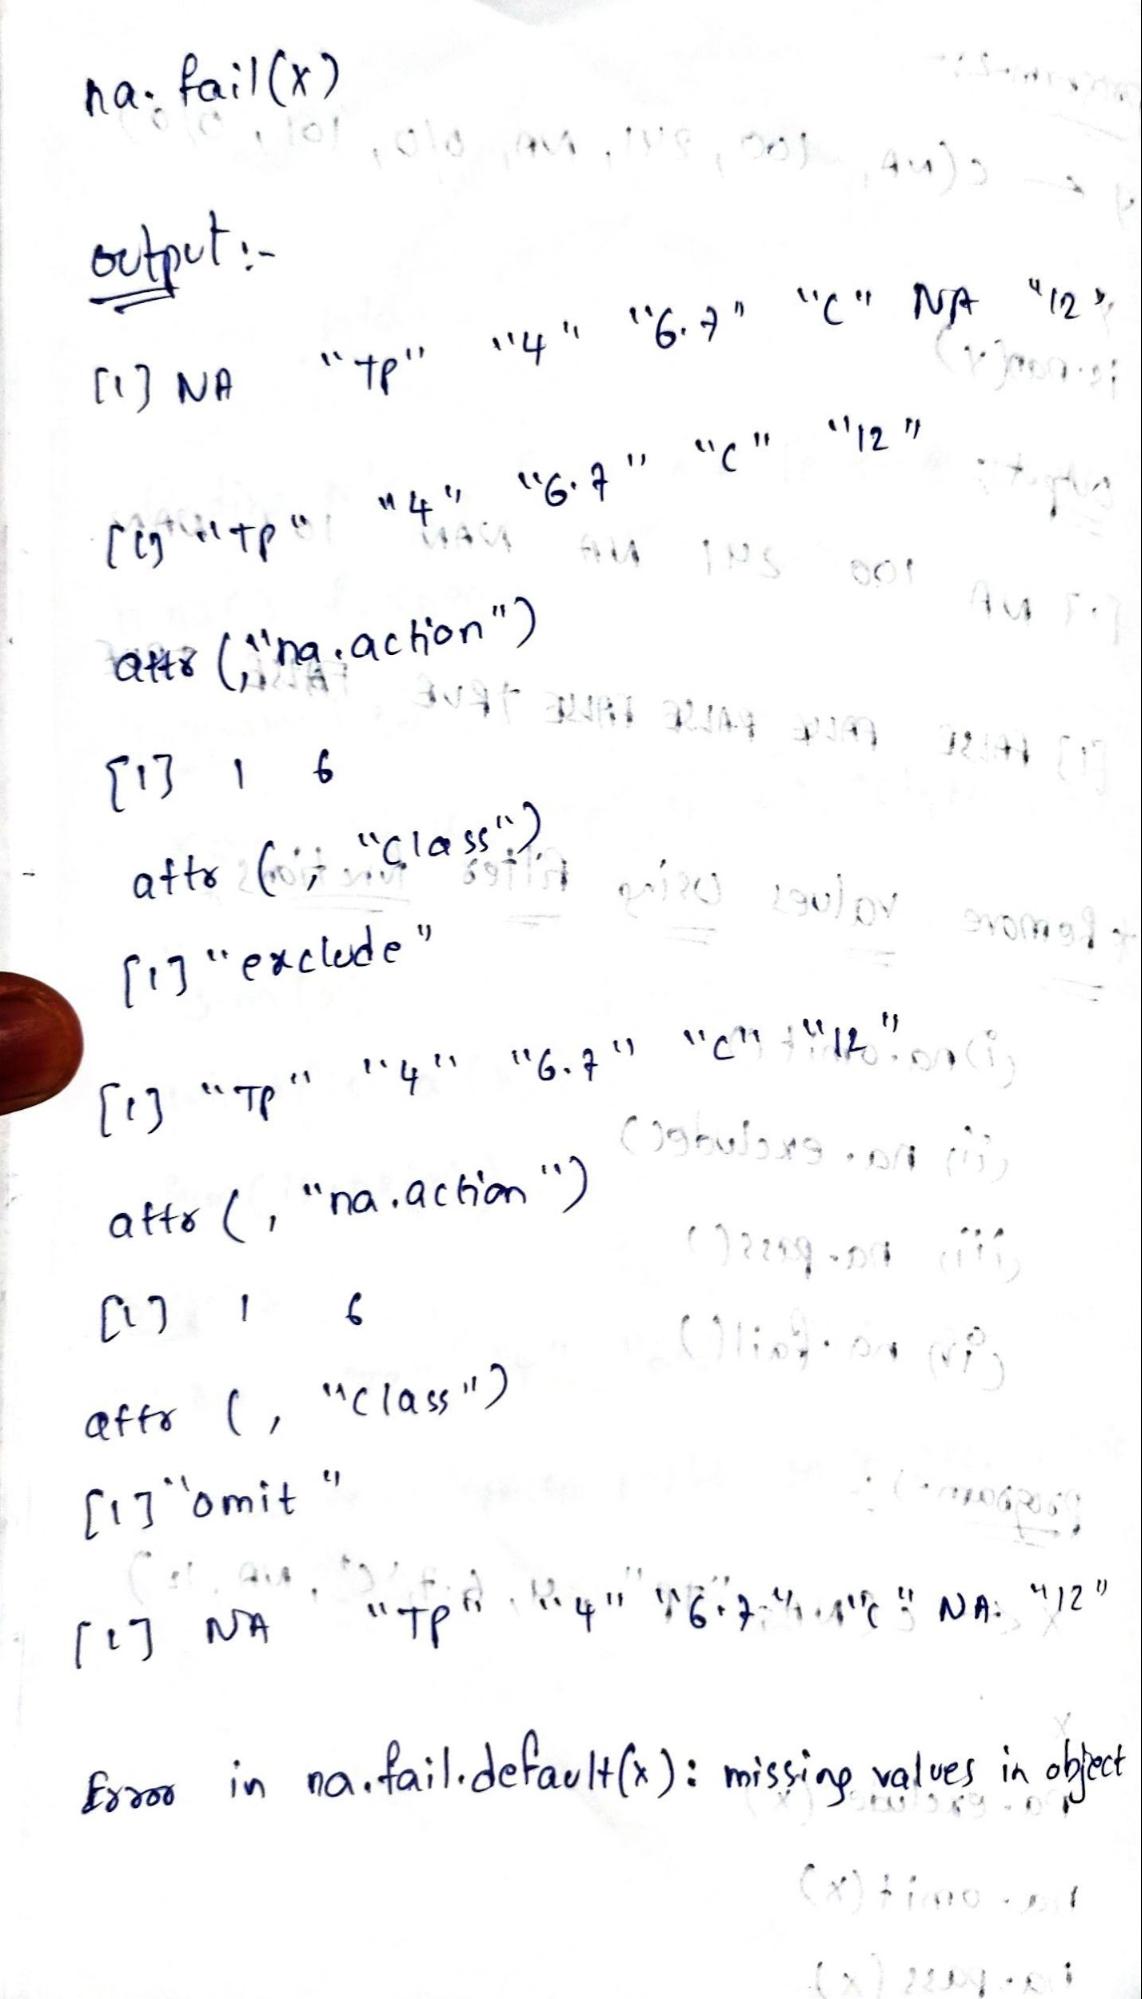 na.fail(x)
output:-
[1] NA "TP" "4" "6.7" "C" NA "12"
[1] "TP" "4" "6.7" "C" "12"
attr(,"na.action")
[1] 1 6
attr(, "class")
[1] "exclude"
[1] "TP" "4" "6.7" "C" "12"
attr(, "na.action")
[1] 1 6
attr (, "class")
[1] "omit"
[1] NA "TP" "4" "6.7" "C" NA "12"
Error in na.fail.default(x): missing values in object